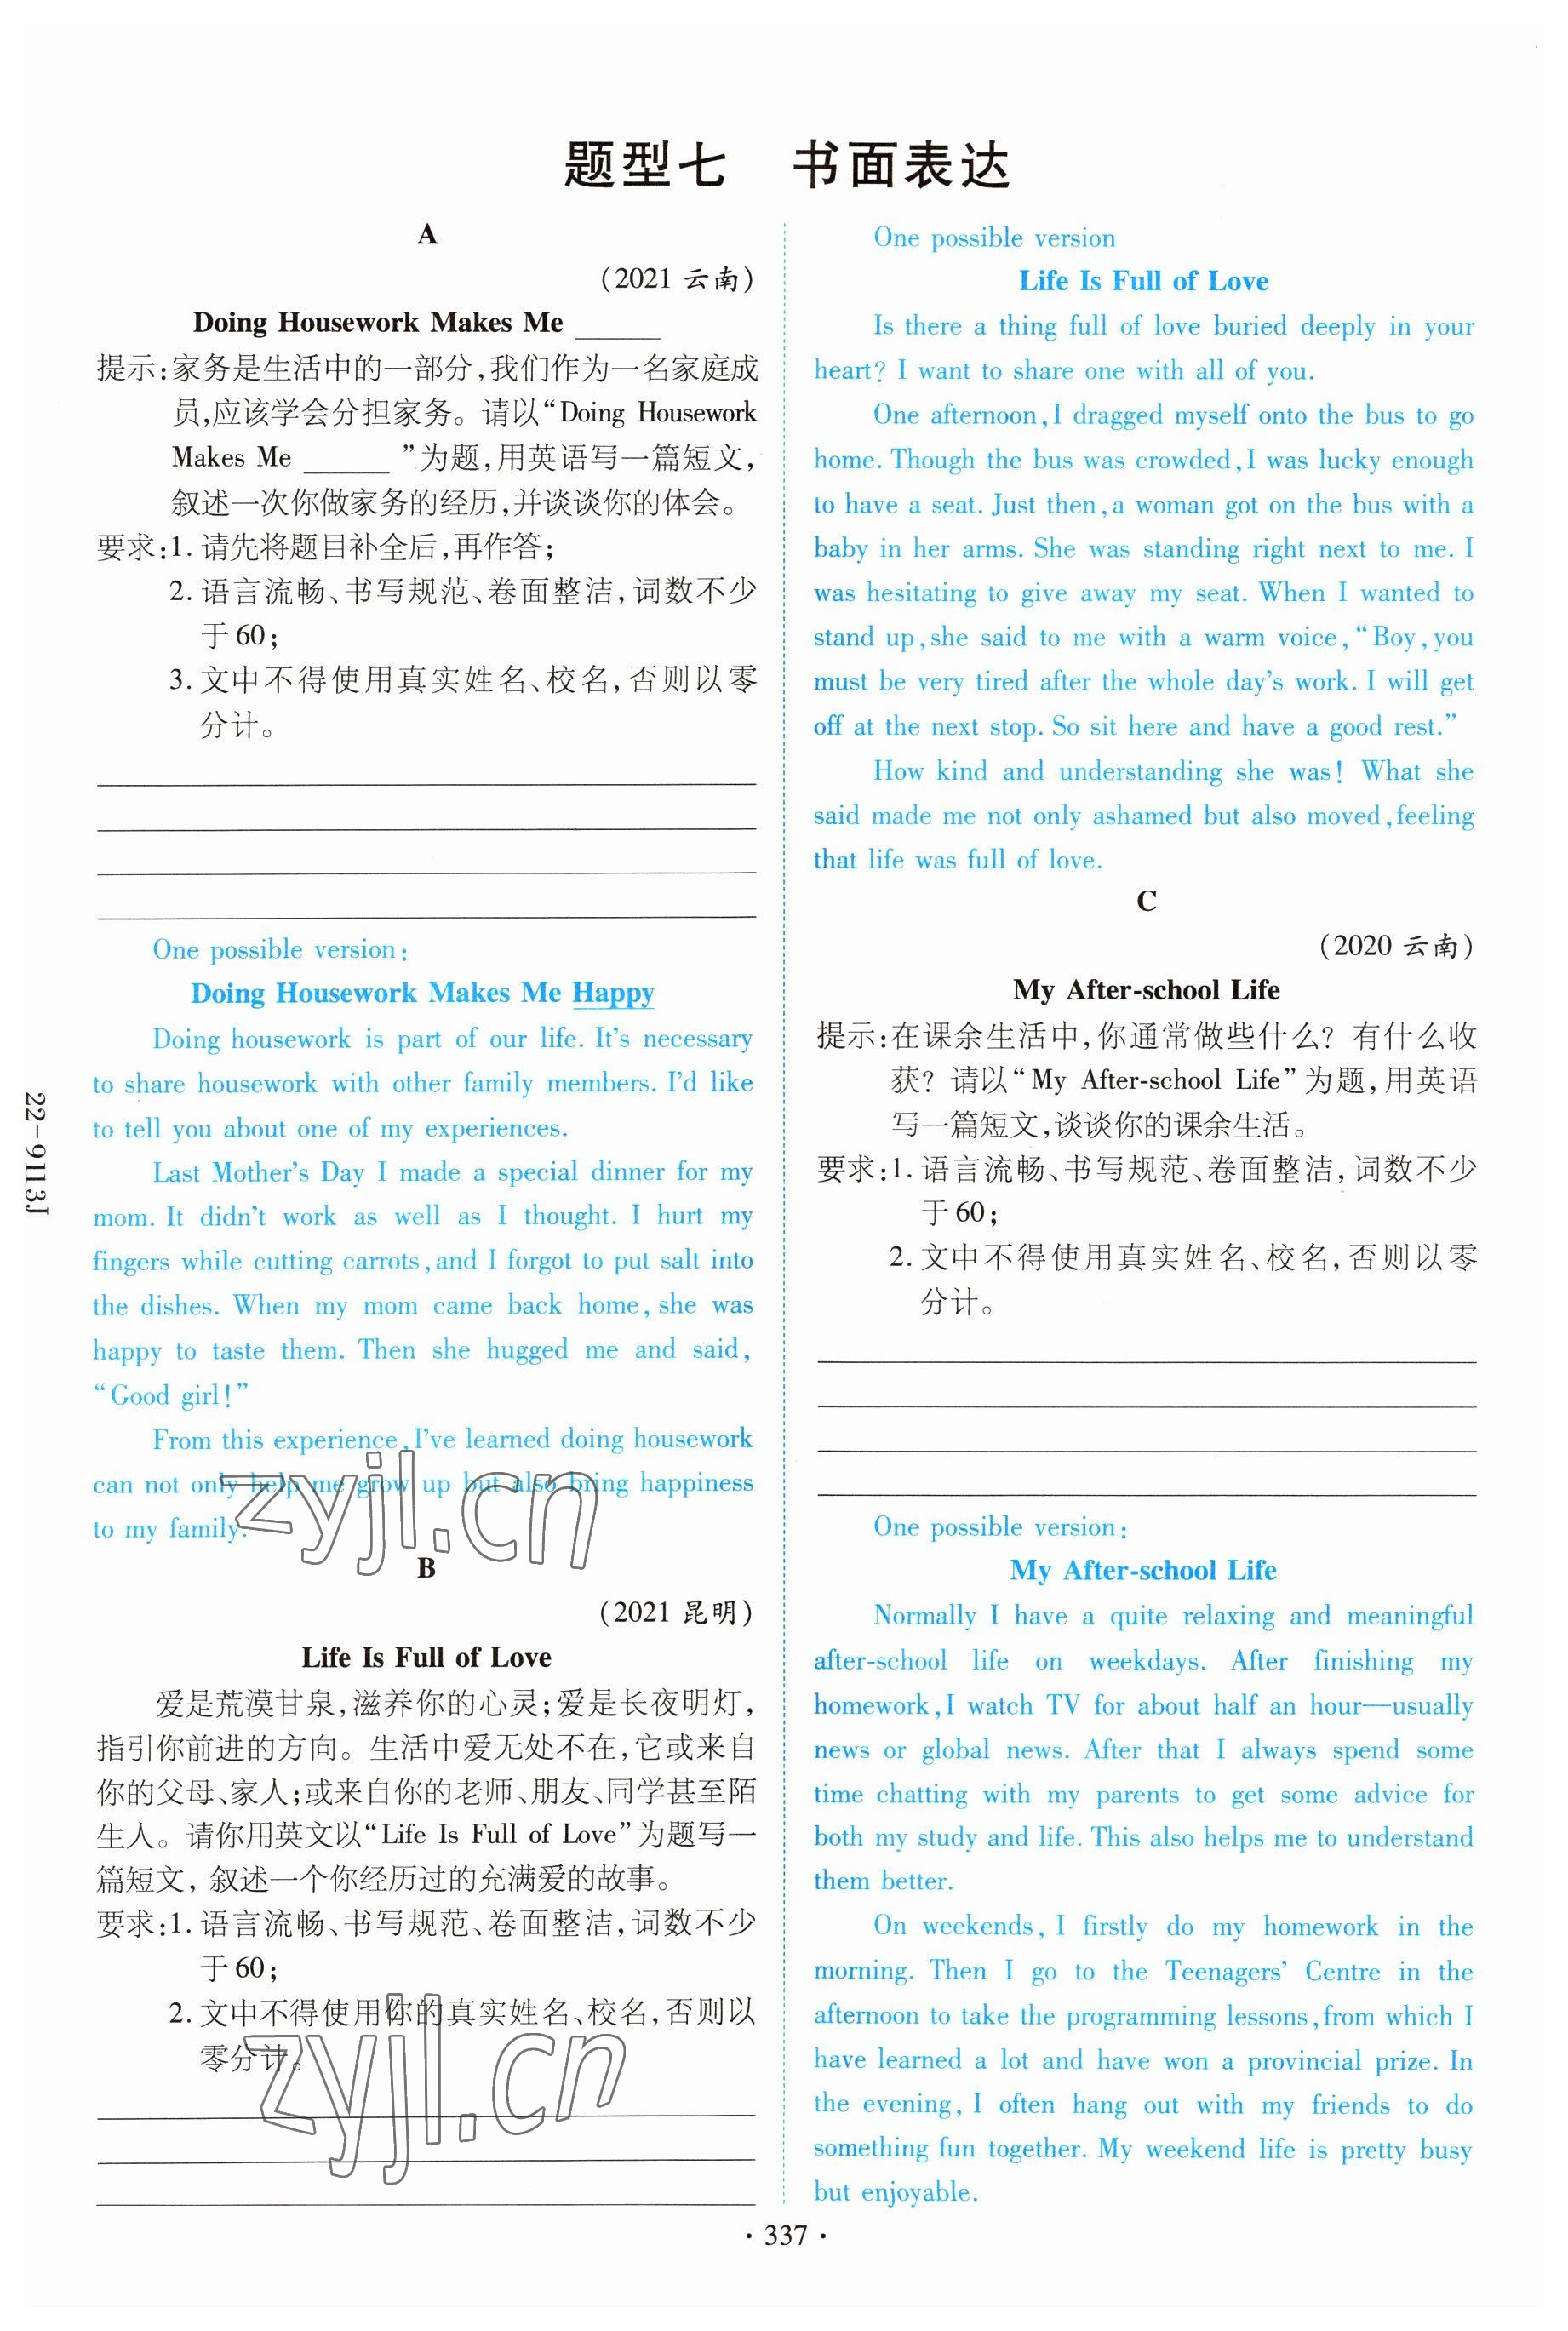 题型七 书面表达
A
(2021 云南)
Doing Housework Makes Me ______
提示:家务是生活中的一部分,我们作为一名家庭成
员,应该学会分担家务。请以“Doing Housework
Makes Me ______ ”为题,用英语写一篇短文,
叙述一次你做家务的经历,并谈谈你的体会。
要求:1. 请先将题目补全后,再作答;
2. 语言流畅、书写规范、卷面整洁,词数不少
于 60;
3. 文中不得使用真实姓名、校名,否则以零
分计。
One possible version:
Doing Housework Makes Me Happy
Doing housework is part of our life. It's necessary
to share housework with other family members. I'd like
to tell you about one of my experiences.
Last Mother's Day I made a special dinner for my
mom. It didn't work as well as I thought. I hurt my
fingers while cutting carrots,and I forgot to put salt into
the dishes. When my mom came back home, she was
happy to taste them. Then she hugged me and said,
“Good girl!”
From this experience,I've learned doing housework
can not only help me grow up but also bring happiness
to my family.
B
(2021 昆明)
Life Is Full of Love
爱是荒漠甘泉,滋养你的心灵;爱是长夜明灯,
指引你前进的方向。生活中爱无处不在,它或来自
你的父母、家人;或来自你的老师、朋友、同学甚至陌
生人。请你用英文以“Life Is Full of Love”为题写一
篇短文, 叙述一个你经历过的充满爱的故事。
要求:1. 语言流畅、书写规范、卷面整洁,词数不少
于 60;
2. 文中不得使用你的真实姓名、校名,否则以
零分计。
One possible version
Life Is Full of Love
Is there a thing full of love buried deeply in your
heart? I want to share one with all of you.
One afternoon,I dragged myself onto the bus to go
home. Though the bus was crowded,I was lucky enough
to have a seat. Just then,a woman got on the bus with a
baby in her arms. She was standing right next to me. I
was hesitating to give away my seat. When I wanted to
stand up,she said to me with a warm voice,“Boy,you
must be very tired after the whole day's work. I will get
off at the next stop. So sit here and have a good rest.”
How kind and understanding she was! What she
said made me not only ashamed but also moved,feeling
that life was full of love.
C
(2020 云南)
My After-school Life
提示:在课余生活中,你通常做些什么? 有什么收
获? 请以“My After-school Life”为题,用英语
写一篇短文,谈谈你的课余生活。
要求:1. 语言流畅、书写规范、卷面整洁,词数不少
于 60;
2. 文中不得使用真实姓名、校名,否则以零
分计。
One possible version:
My After-school Life
Normally I have a quite relaxing and meaningful
after-school life on weekdays. After finishing my
homework,I watch TV for about half an hour—usually
news or global news. After that I always spend some
time chatting with my parents to get some advice for
both my study and life. This also helps me to understand
them better.
On weekends, I firstly do my homework in the
morning. Then I go to the Teenagers' Centre in the
afternoon to take the programming lessons,from which I
have learned a lot and have won a provincial prize. In
the evening, I often hang out with my friends to do
something fun together. My weekend life is pretty busy
but enjoyable.
22-9113J
zyjl.cn
zyjl.cn
· 337 ·